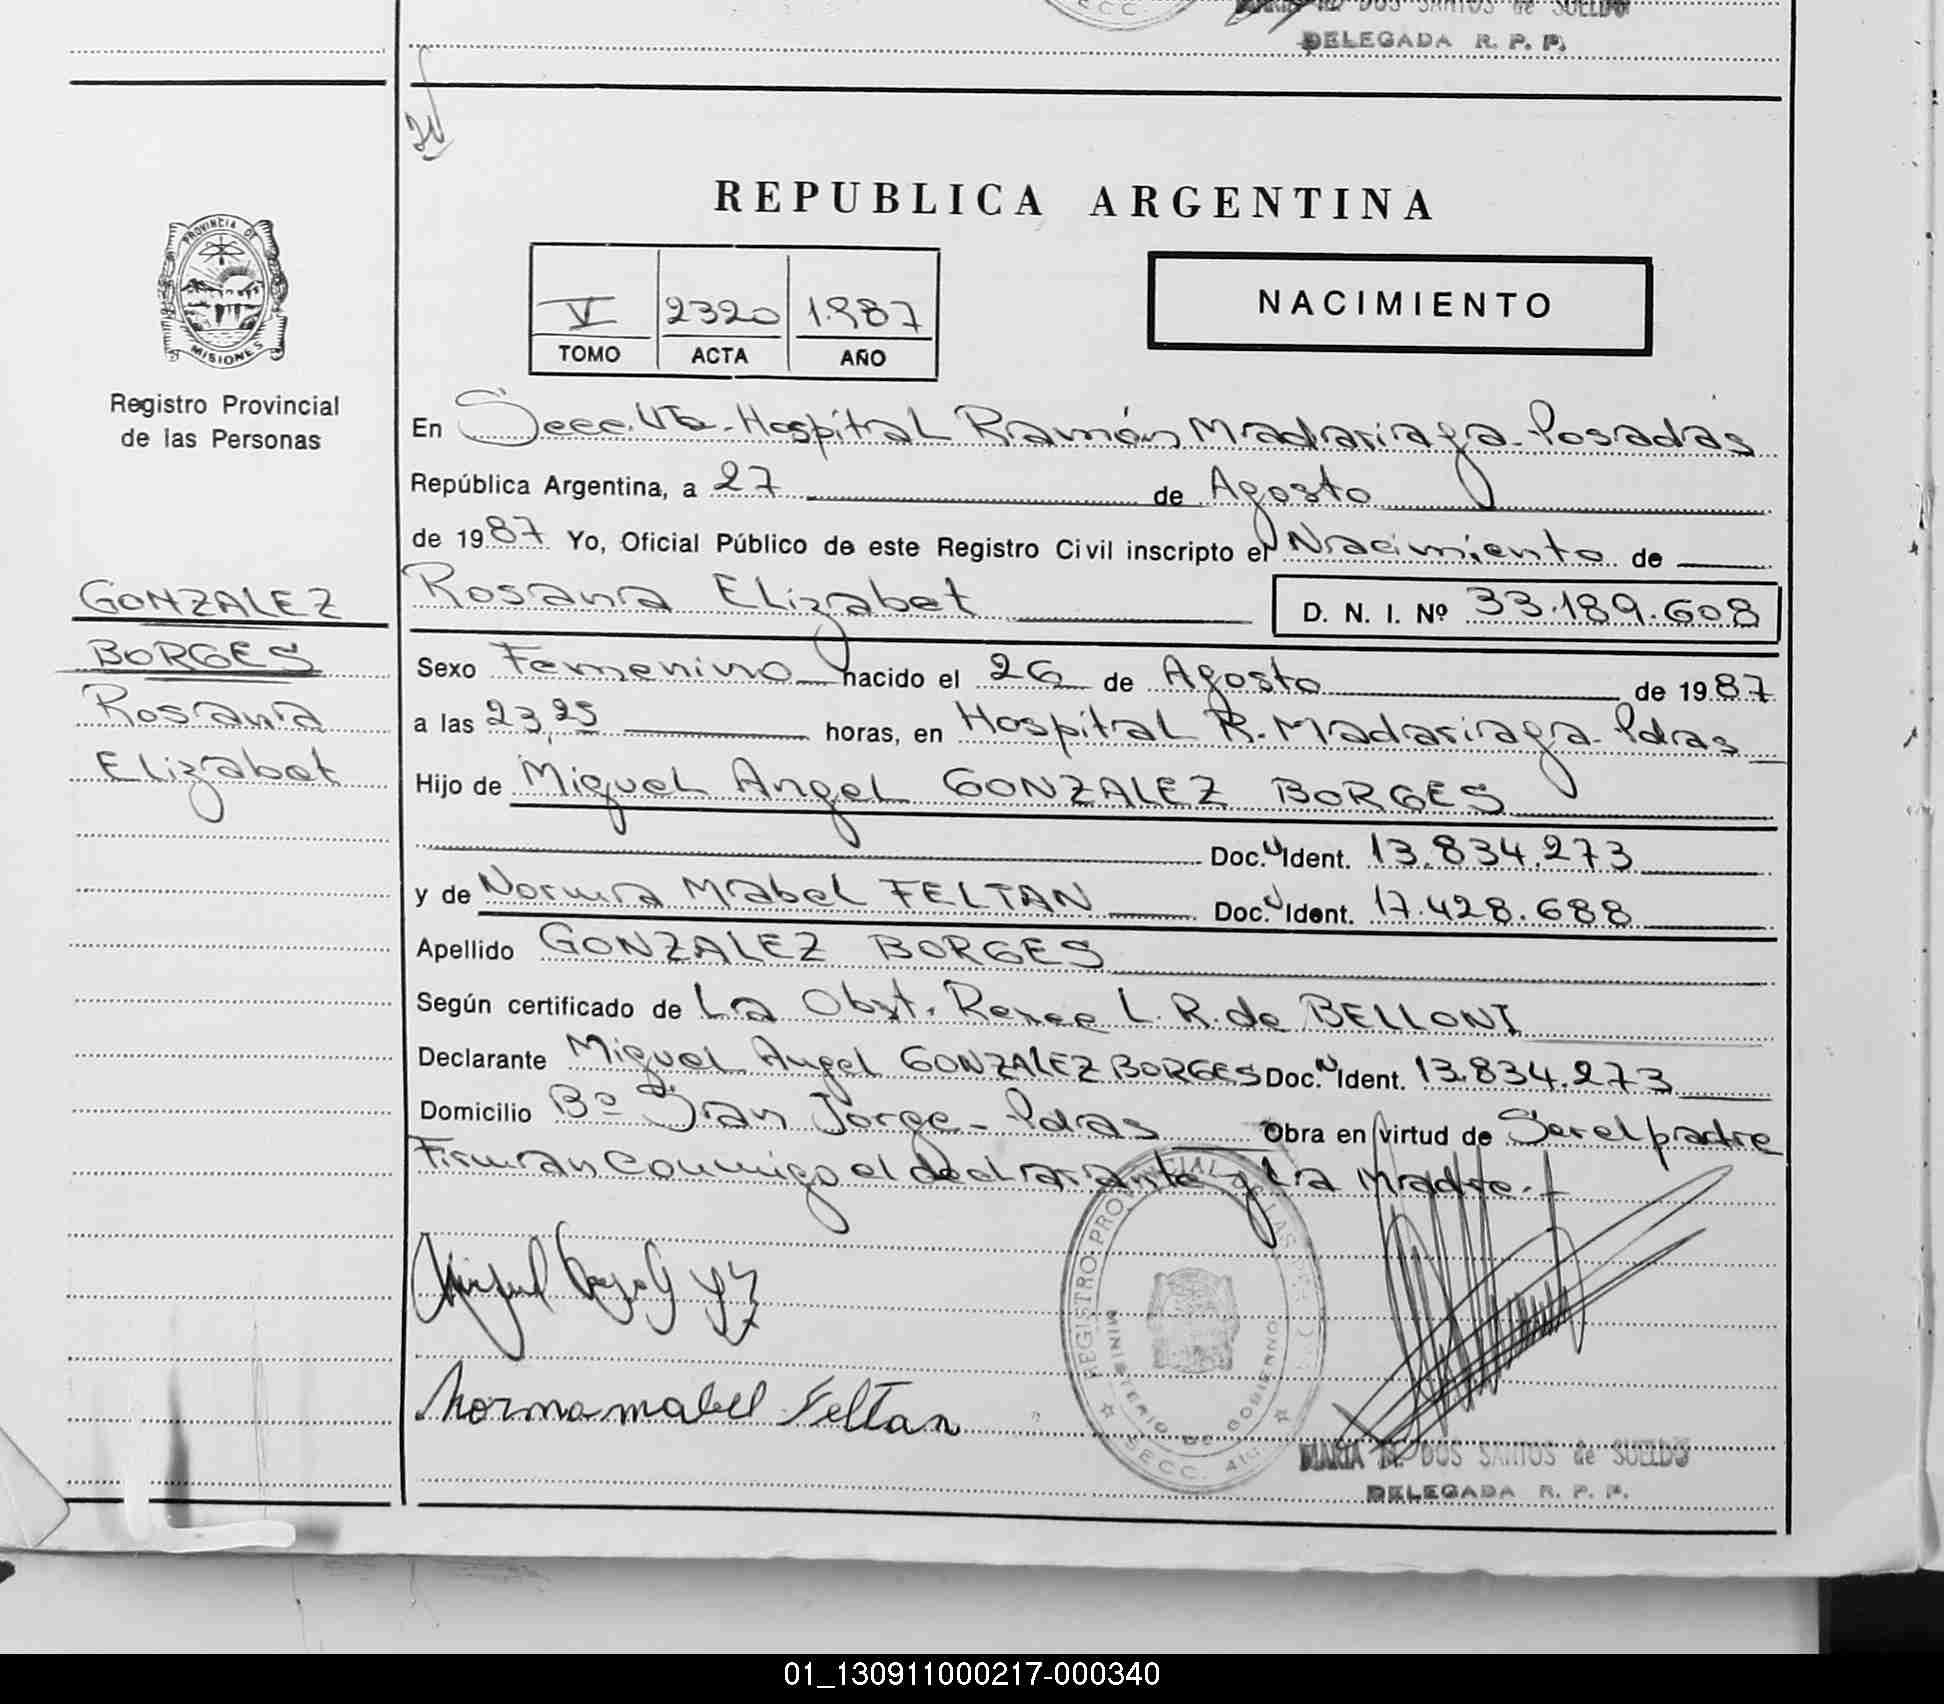 MARIA M. DOS SANTOS de SUELDO
DELEGADA R. P. P.
SECC
REPUBLICA ARGENTINA
PROVINCIA DE
MISIONES
Registro Provincial
de las Personas
V 2320 1987
TOMO ACTA AÑO
NACIMIENTO
En Secc. Vta. Hospital Ramón Madariaga - Posadas
República Argentina, a 27 de Agosto
de 1987 Yo, Oficial Público de este Registro Civil inscripto el Nacimiento de
GONZALEZ
BORGES
Rosana
Elizabet
Rosana Elizabet D. N. I. Nº 33.189.608
Sexo Femenino nacido el 26 de Agosto de 1987
a las 23,25 horas, en Hospital R. Madariaga - Pdas
Hijo de Miguel Angel GONZALEZ BORGES
Doc. Ident. 13.834.273
y de Norma Mabel FELTAN Doc. Ident. 17.428.688
Apellido GONZALEZ BORGES
Según certificado de La Obst. Renee L. R. de BELLONI
Declarante Miguel Angel GONZALEZ BORGES Doc. Ident. 13.834.273
Domicilio Bº San Jorge - Pdas Obra en virtud de Ser el padre
Firman conmigo el declarante y La Madre.-
REGISTRO PROVINCIAL DE LAS
MINISTERIO DE GOBIERNO
SECC.
Norma mabel Feltan
MARIA M. DOS SANTOS de SUELDO
DELEGADA R. P. P.
01_130911000217-000340